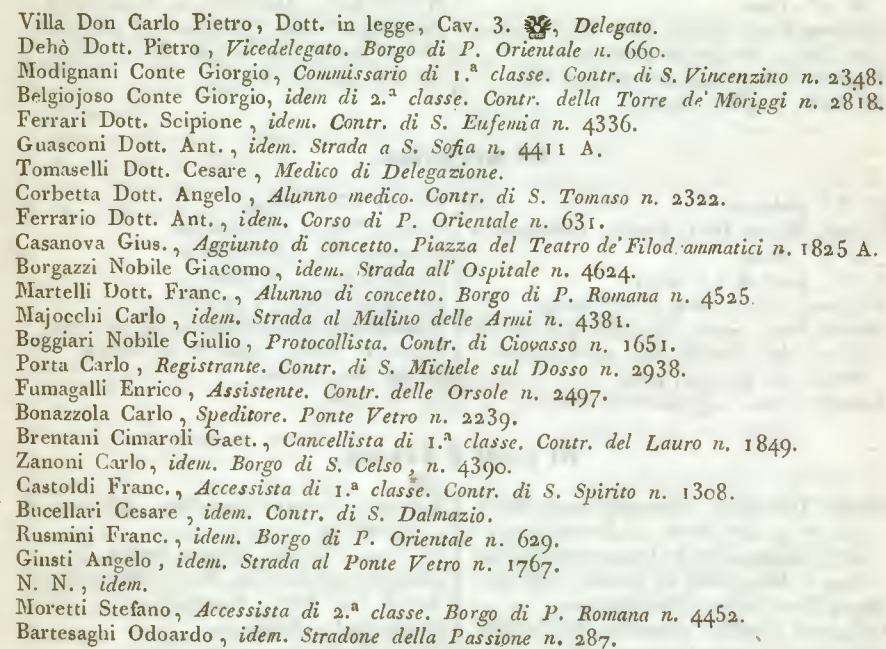 Villa Don Carlo Pietro, Dott. in legge, Cav. 3. , Delegato.
Dehò Dott. Pietro, Vicedelegato. Borgo di P. Orientale n. 660.
Modignani Conte Giorgio, Commissario di 1.ª classe. Contr. di S. Vincenzino n. 2348.
Belgiojoso Conte Giorgio, idem di 2.ª classe. Contr. della Torre de' Moriggi n. 2818.
Ferrari Dott. Scipione, idem. Contr. di S. Eufemia n. 4336.
Guasconi Dott. Ant., idem. Strada a S. Sofia n. 4411 A.
Tomaselli Dott. Cesare, Medico di Delegazione.
Corbetta Dott. Angelo, Alunno medico. Contr. di S. Tomaso n. 2322.
Ferrario Dott. Ant., idem. Corso di P. Orientale n. 631.
Casanova Gius., Aggiunto di concetto. Piazza del Teatro de' Filod.ammatici n. 1825 A.
Borgazzi Nobile Giacomo, idem. Strada all' Ospitale n. 4624.
Martelli Dott. Franc., Alunno di concetto. Borgo di P. Romana n. 4525.
Majocchi Carlo, idem. Strada al Mulino delle Armi n. 4381.
Boggiari Nobile Giulio, Protocollista. Contr. di Ciovasso n. 1651.
Porta Carlo, Registrante. Contr. di S. Michele sul Dosso n. 2938.
Fumagalli Enrico, Assistente. Contr. delle Orsole n. 2497.
Bonazzola Carlo, Speditore. Ponte Vetro n. 2239.
Brentani Cimaroli Gaet., Cancellista di 1.ª classe. Contr. del Lauro n. 1849.
Zanoni Carlo, idem. Borgo di S. Celso, n. 4390.
Castoldi Franc., Accessista di 1.ª classe. Contr. di S. Spirito n. 1308.
Bucellari Cesare, idem. Contr. di S. Dalmazio.
Rusmini Franc., idem. Borgo di P. Orientale n. 629.
Giusti Angelo, idem. Strada al Ponte Vetro n. 1767.
N. N., idem.
Moretti Stefano, Accessista di 2.ª classe. Borgo di P. Romana n. 4452.
Bartesaghi Odoardo, idem. Stradone della Passione n. 287.